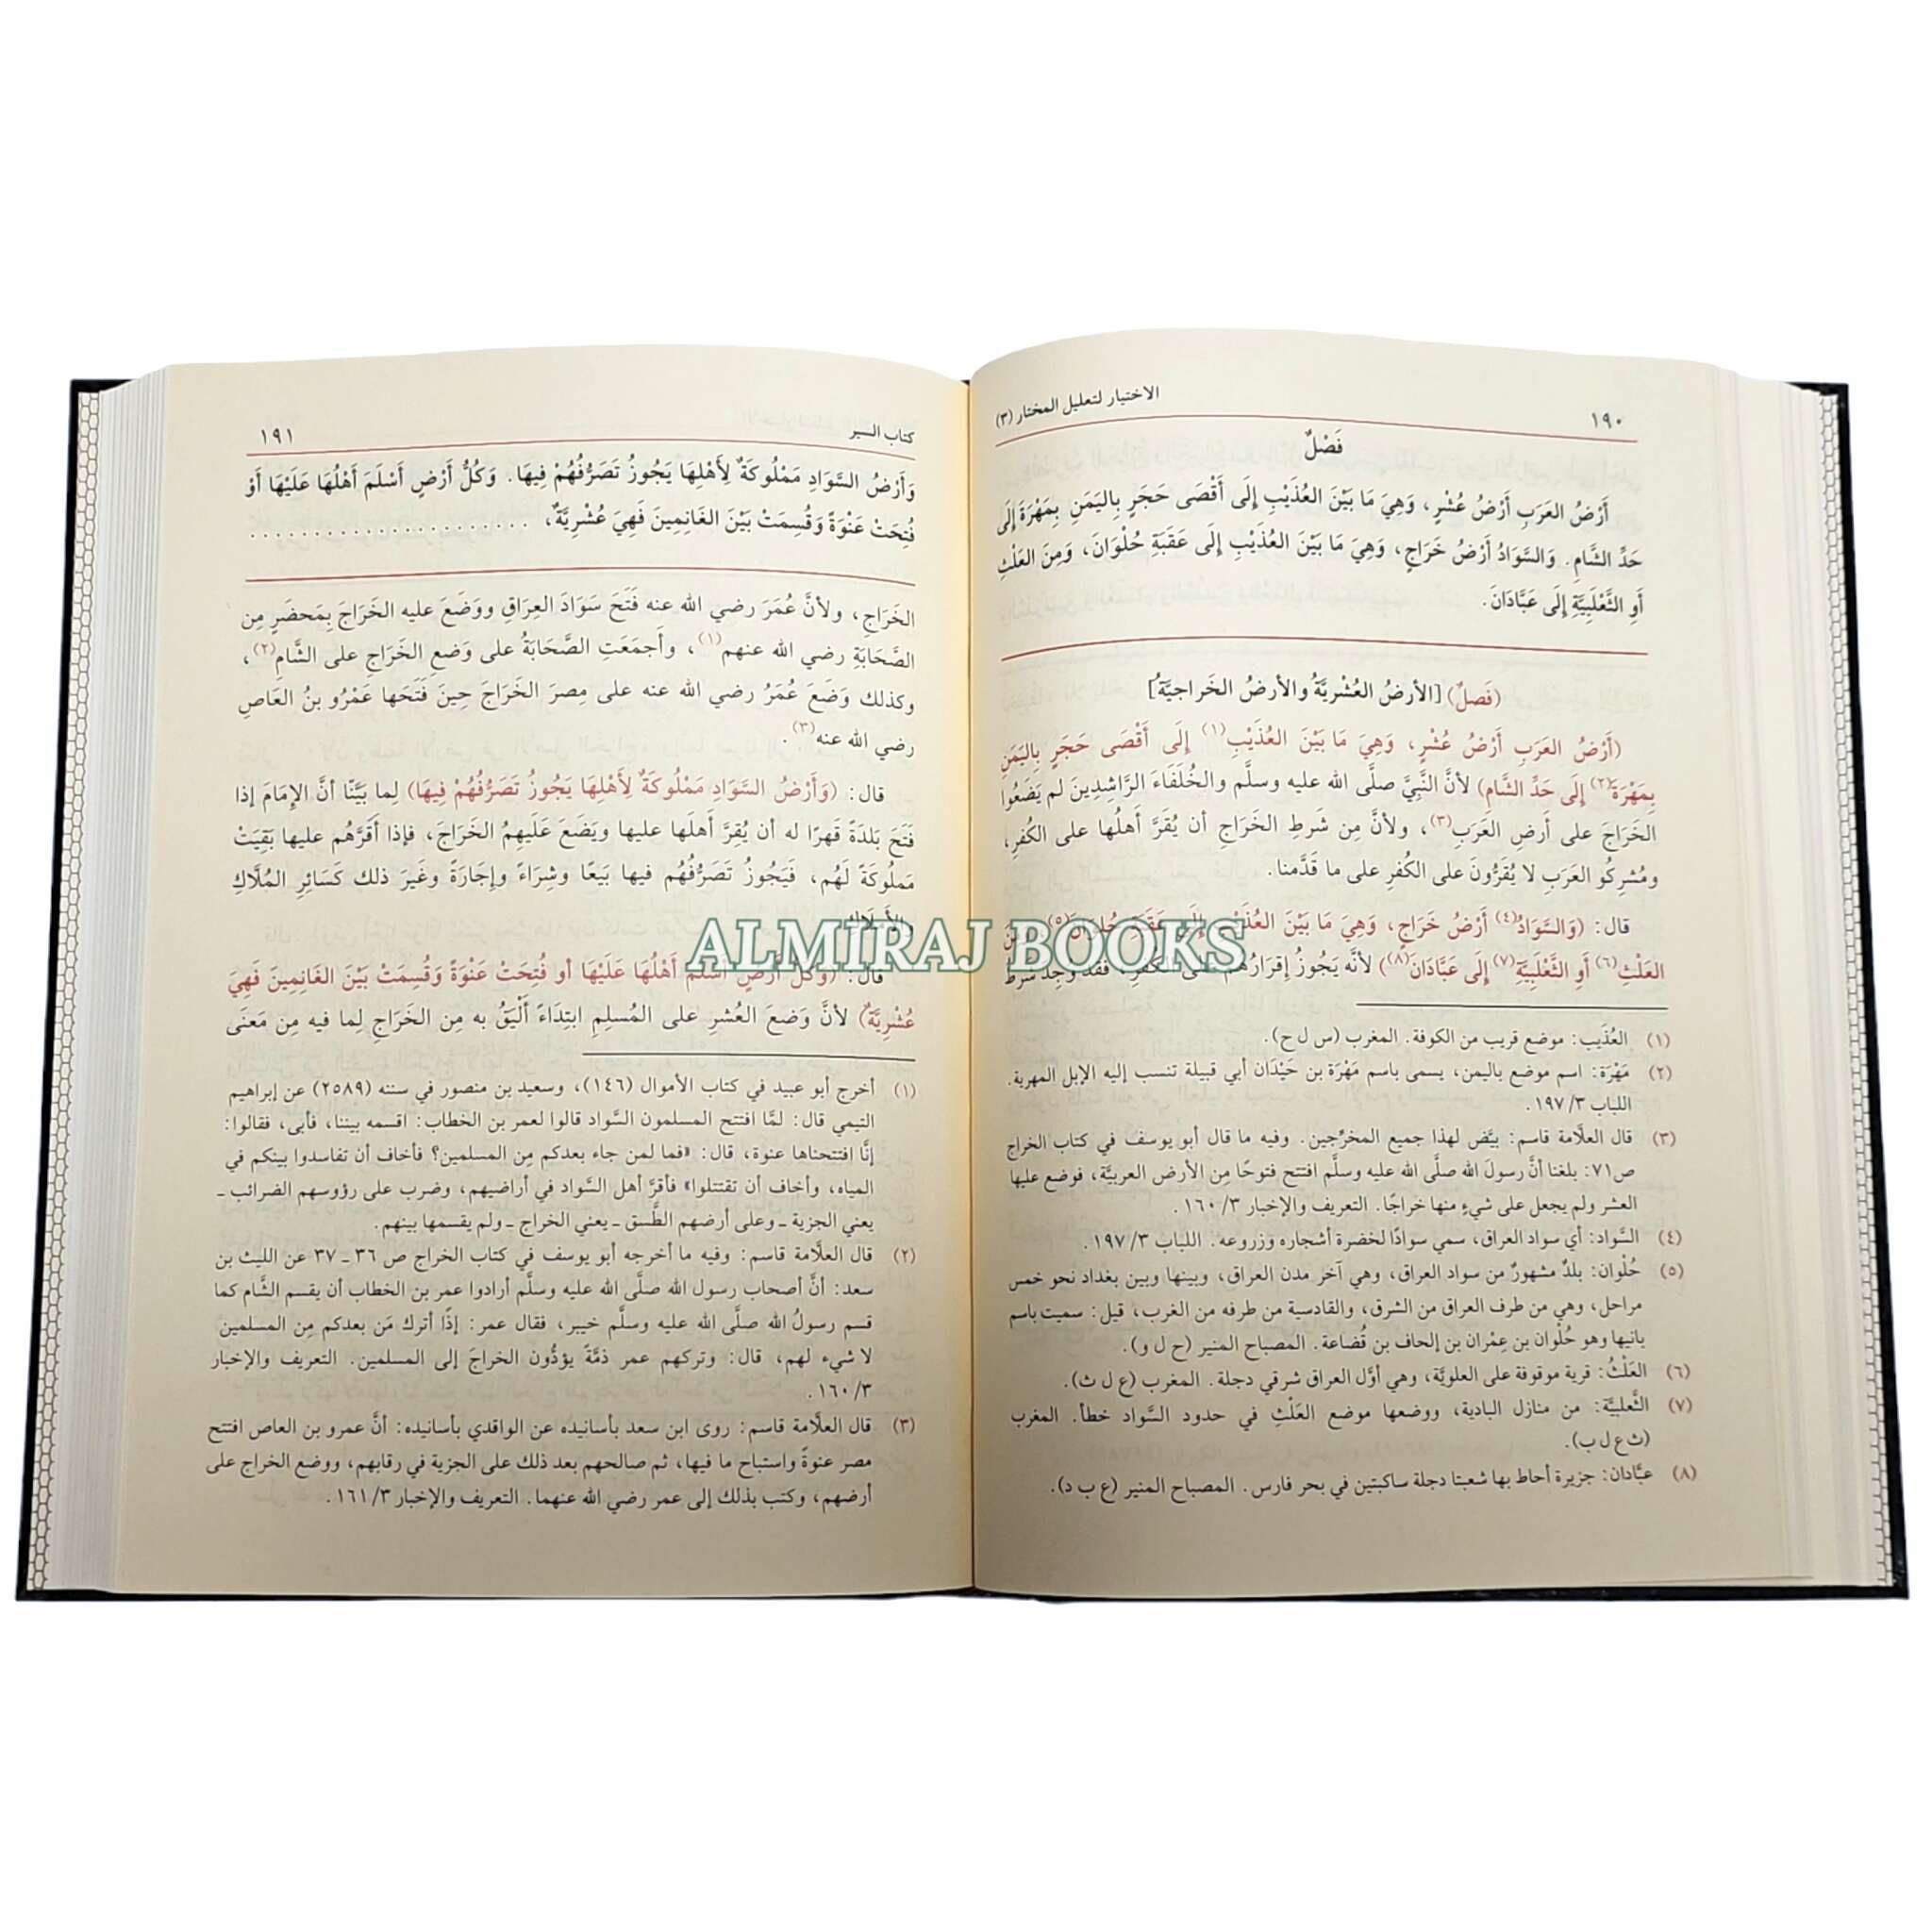 ١٩٠
الاختيار لتعليل المختار (٣)
فَصْلٌ
أَرْضُ العَرَبِ أَرْضُ عُشْرٍ، وَهِيَ مَا بَيْنَ العُذَيْبِ إِلَى أَقْصَى حَجَرٍ بِاليَمَنِ بِمَهْرَةَ إِلَى
حَدِّ الشَّامِ. وَالسَّوَادُ أَرْضُ خَرَاجٍ، وَهِيَ مَا بَيْنَ العُذَيْبِ إِلَى عَقَبَةِ حُلْوَانَ، وَمِنَ العَلْثِ
أَوِ الثَّعْلَبِيَّةِ إِلَى عَبَّادَانَ.
(فَصلٌ) [الأرضُ العُشْريَّةُ والأرضُ الخَراجيَّةُ]
(أَرْضُ العَرَبِ أَرْضُ عُشْرٍ، وَهِيَ مَا بَيْنَ العُذَيْبِ(١) إِلَى أَقْصَى حَجَرٍ بِاليَمَنِ
بِمَهْرَةَ(٢) إِلَى حَدِّ الشَّامِ) لأنَّ النَّبِيَّ صلَّى الله عليه وسلَّم والخُلَفَاءَ الرَّاشِدِينَ لم يَضَعُوا
الخَرَاجَ على أَرضِ العَرَبِ(٣)، ولأنَّ مِن شَرطِ الخَرَاجِ أن يُقَرَّ أَهلُها على الكُفرِ،
ومُشرِكُو العَرَبِ لا يُقَرُّونَ على الكُفرِ على ما قَدَّمنا.
قال: (وَالسَّوَادُ(٤) أَرْضُ خَرَاجٍ، وَهِيَ مَا بَيْنَ العُذَيْبِ إِلَى عَقَبَةِ حُلْوَانَ(٥)، وَمِنَ
العَلْثِ(٦) أَوِ الثَّعْلَبِيَّةِ(٧) إِلَى عَبَّادَانَ(٨)) لأنَّه يَجُوزُ إِقرَارُهُم على الكُفرِ، فقد وُجِدَ شَرطُ
(١) العُذَيب: موضع قريب من الكوفة. المغرب (س ل ح).
(٢) مَهْرَة: اسم موضع باليمن، يسمى باسم مَهْرَة بن حَيْدَان أبي قبيلة تنسب إليه الإبل المهرية.
اللباب ٣/ ١٩٧.
(٣) قال العلَّامة قاسم: بيَّض لهذا جميع المخرِّجين. وفيه ما قال أبو يوسف في كتاب الخراج
ص٧١: بلغنا أنَّ رسولَ الله صلَّى الله عليه وسلَّم افتتح فتوحًا مِن الأرض العربيَّة، فوضع عليها
العشر ولم يجعل على شيءٍ منها خراجًا. التعريف والإخبار ٣/ ١٦٠.
(٤) السَّواد: أي سواد العراق، سمي سوادًا لخضرة أشجاره وزروعه. اللباب ٣/ ١٩٧.
(٥) حُلْوان: بلدٌ مشهورٌ من سواد العراق، وهي آخر مدن العراق، وبينها وبين بغداد نحو خمس
مراحل، وهي من طرف العراق من الشرق، والقادسية من طرفه من الغرب، قيل: سميت باسم
بانيها وهو حُلْوان بن عِمْران بن إلحاف بن قُضاعة. المصباح المنير (ح ل و).
(٦) العَلْثُ: قرية موقوفة على العلويَّة، وهي أوَّل العراق شرقي دجلة. المغرب (ع ل ث).
(٧) الثَّعلبيَّة: من منازل البادية، ووضعها موضع العَلْثِ في حدود السَّواد خطأ. المغرب
(ث ع ل ب).
(٨) عبَّادان: جزيرة أحاط بها شعبتا دجلة ساكبتين في بحر فارس. المصباح المنير (ع ب د).
كتاب السير
١٩١
وَأَرْضُ السَّوَادِ مَمْلُوكَةٌ لِأَهْلِهَا يَجُوزُ تَصَرُّفُهُمْ فِيهَا. وَكُلُّ أَرْضٍ أَسْلَمَ أَهْلُهَا عَلَيْهَا أَوْ
فُتِحَتْ عَنْوَةً وَقُسِمَتْ بَيْنَ الغَانِمِينَ فَهِيَ عُشْرِيَّةٌ، ......................
الخَرَاجِ، ولأنَّ عُمَرَ رضي الله عنه فَتَحَ سَوَادَ العِرَاقِ ووَضَعَ عليه الخَرَاجَ بِمَحضَرٍ مِن
الصَّحَابَةِ رضي الله عنهم(١)، وأَجمَعَتِ الصَّحَابَةُ على وَضعِ الخَرَاجِ على الشَّامِ(٢)،
وكذلك وَضَعَ عُمَرُ رضي الله عنه على مِصرَ الخَرَاجَ حِينَ فَتَحَها عَمْرُو بنُ العَاصِ
رضي الله عنه(٣).
قال: (وَأَرْضُ السَّوَادِ مَمْلُوكَةٌ لِأَهْلِهَا يَجُوزُ تَصَرُّفُهُمْ فِيهَا) لِما بَيَّنّا أنَّ الإِمَامَ إذا
فَتَحَ بَلدَةً قَهرًا له أن يُقِرَّ أَهلَها عليها ويَضَعَ عَلَيهِمُ الخَرَاجَ، فإذا أَقَرَّهُم عليها بَقِيَت
مَملُوكَةً لَهُم، فَيَجُوزُ تَصَرُّفُهُم فيها بَيعًا وشِرَاءً وإجَارَةً وغَيرَ ذلك كَسَائِرِ المُلَّاكِ
بالأَملَاكِ.
قال: (وَكُلُّ أَرْضٍ أَسْلَمَ أَهْلُهَا عَلَيْهَا أو فُتِحَتْ عَنْوَةً وَقُسِمَتْ بَيْنَ الغَانِمِينَ فَهِيَ
عُشْرِيَّةٌ) لأنَّ وَضعَ العُشرِ على المُسلِمِ ابتِدَاءً أَلْيَقُ به مِن الخَرَاجِ لِما فيه مِن مَعنَى
(١) أخرج أبو عبيد في كتاب الأموال (١٤٦)، وسعيد بن منصور في سننه (٢٥٨٩) عن إبراهيم
التيمي قال: لمَّا افتتح المسلمون السَّواد قالوا لعمر بن الخطاب: اقسمه بيننا، فأبى، فقالوا:
إنَّا افتتحناها عنوة، قال: «فما لمن جاء بعدكم مِن المسلمين؟ فأخاف أن تفاسدوا بينكم في
المياه، وأخاف أن تقتتلوا» فأقرَّ أهل السَّواد في أراضيهم، وضرب على رؤوسهم الضرائب ـ
يعني الجزية ـ وعلى أرضهم الطَّسق ـ يعني الخراج ـ ولم يقسمها بينهم.
(٢) قال العلَّامة قاسم: وفيه ما أخرجه أبو يوسف في كتاب الخراج ص ٣٦ ـ ٣٧ عن الليث بن
سعد: أنَّ أصحاب رسول الله صلَّى الله عليه وسلَّم أرادوا عمر بن الخطاب أن يقسم الشَّام كما
قسم رسولُ الله صلَّى الله عليه وسلَّم خيبر، فقال عمر: إذًا أترك مَن بعدكم مِن المسلمين
لا شيء لهم، قال: وتركهم عمر ذمَّةً يؤدُّون الخراجَ إلى المسلمين. التعريف والإخبار
٣/ ١٦٠.
(٣) قال العلَّامة قاسم: روى ابن سعد بأسانيده عن الواقدي بأسانيده: أنَّ عمرو بن العاص افتتح
مصر عنوةً واستباح ما فيها، ثم صالحهم بعد ذلك على الجزية في رقابهم، ووضع الخراج على
أرضهم، وكتب بذلك إلى عمر رضي الله عنهما. التعريف والإخبار ٣/ ١٦١.
ALMIRAJ BOOKS